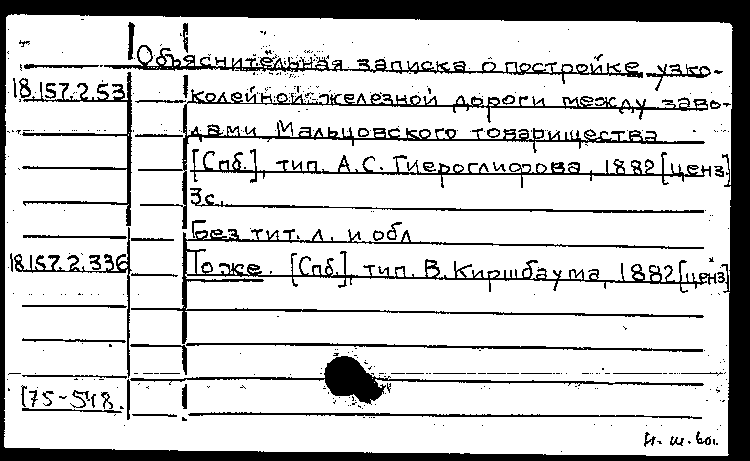 Объяснительная записка о постройке узко-
18.157.2.53 колейной железной дороги между заво-
дами Мальцовского товарищества
[Спб.], тип. А.С. Гиероглифова, 1882 [ценз.]
3 с.
Без тит. л. и обл
18.157.2.336 То же. [Спб.], тип. В. Киршбаума, 1882 [ценз]
175-548.